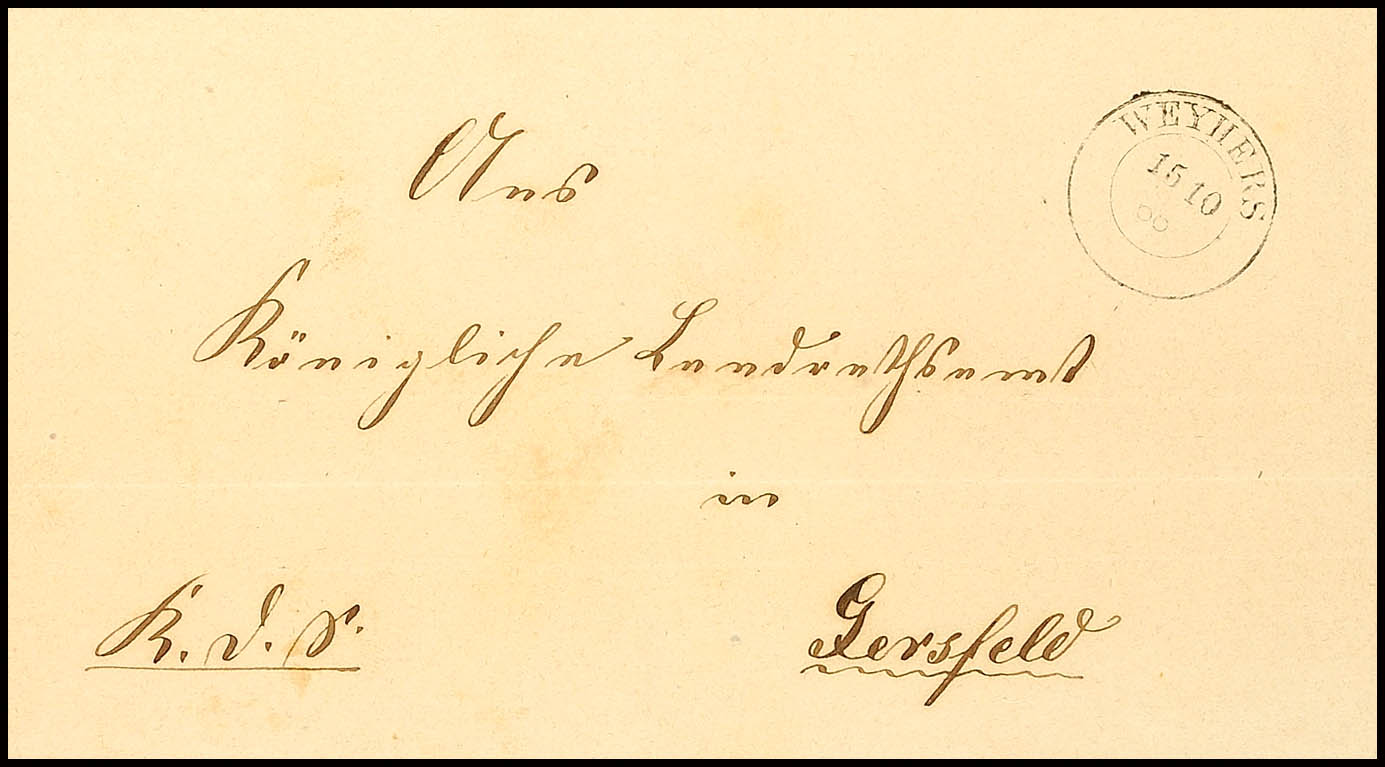 WEYHERS
15 10
Ans
Königliche Landrathsamt
in
Gersfeld
K. d. S.